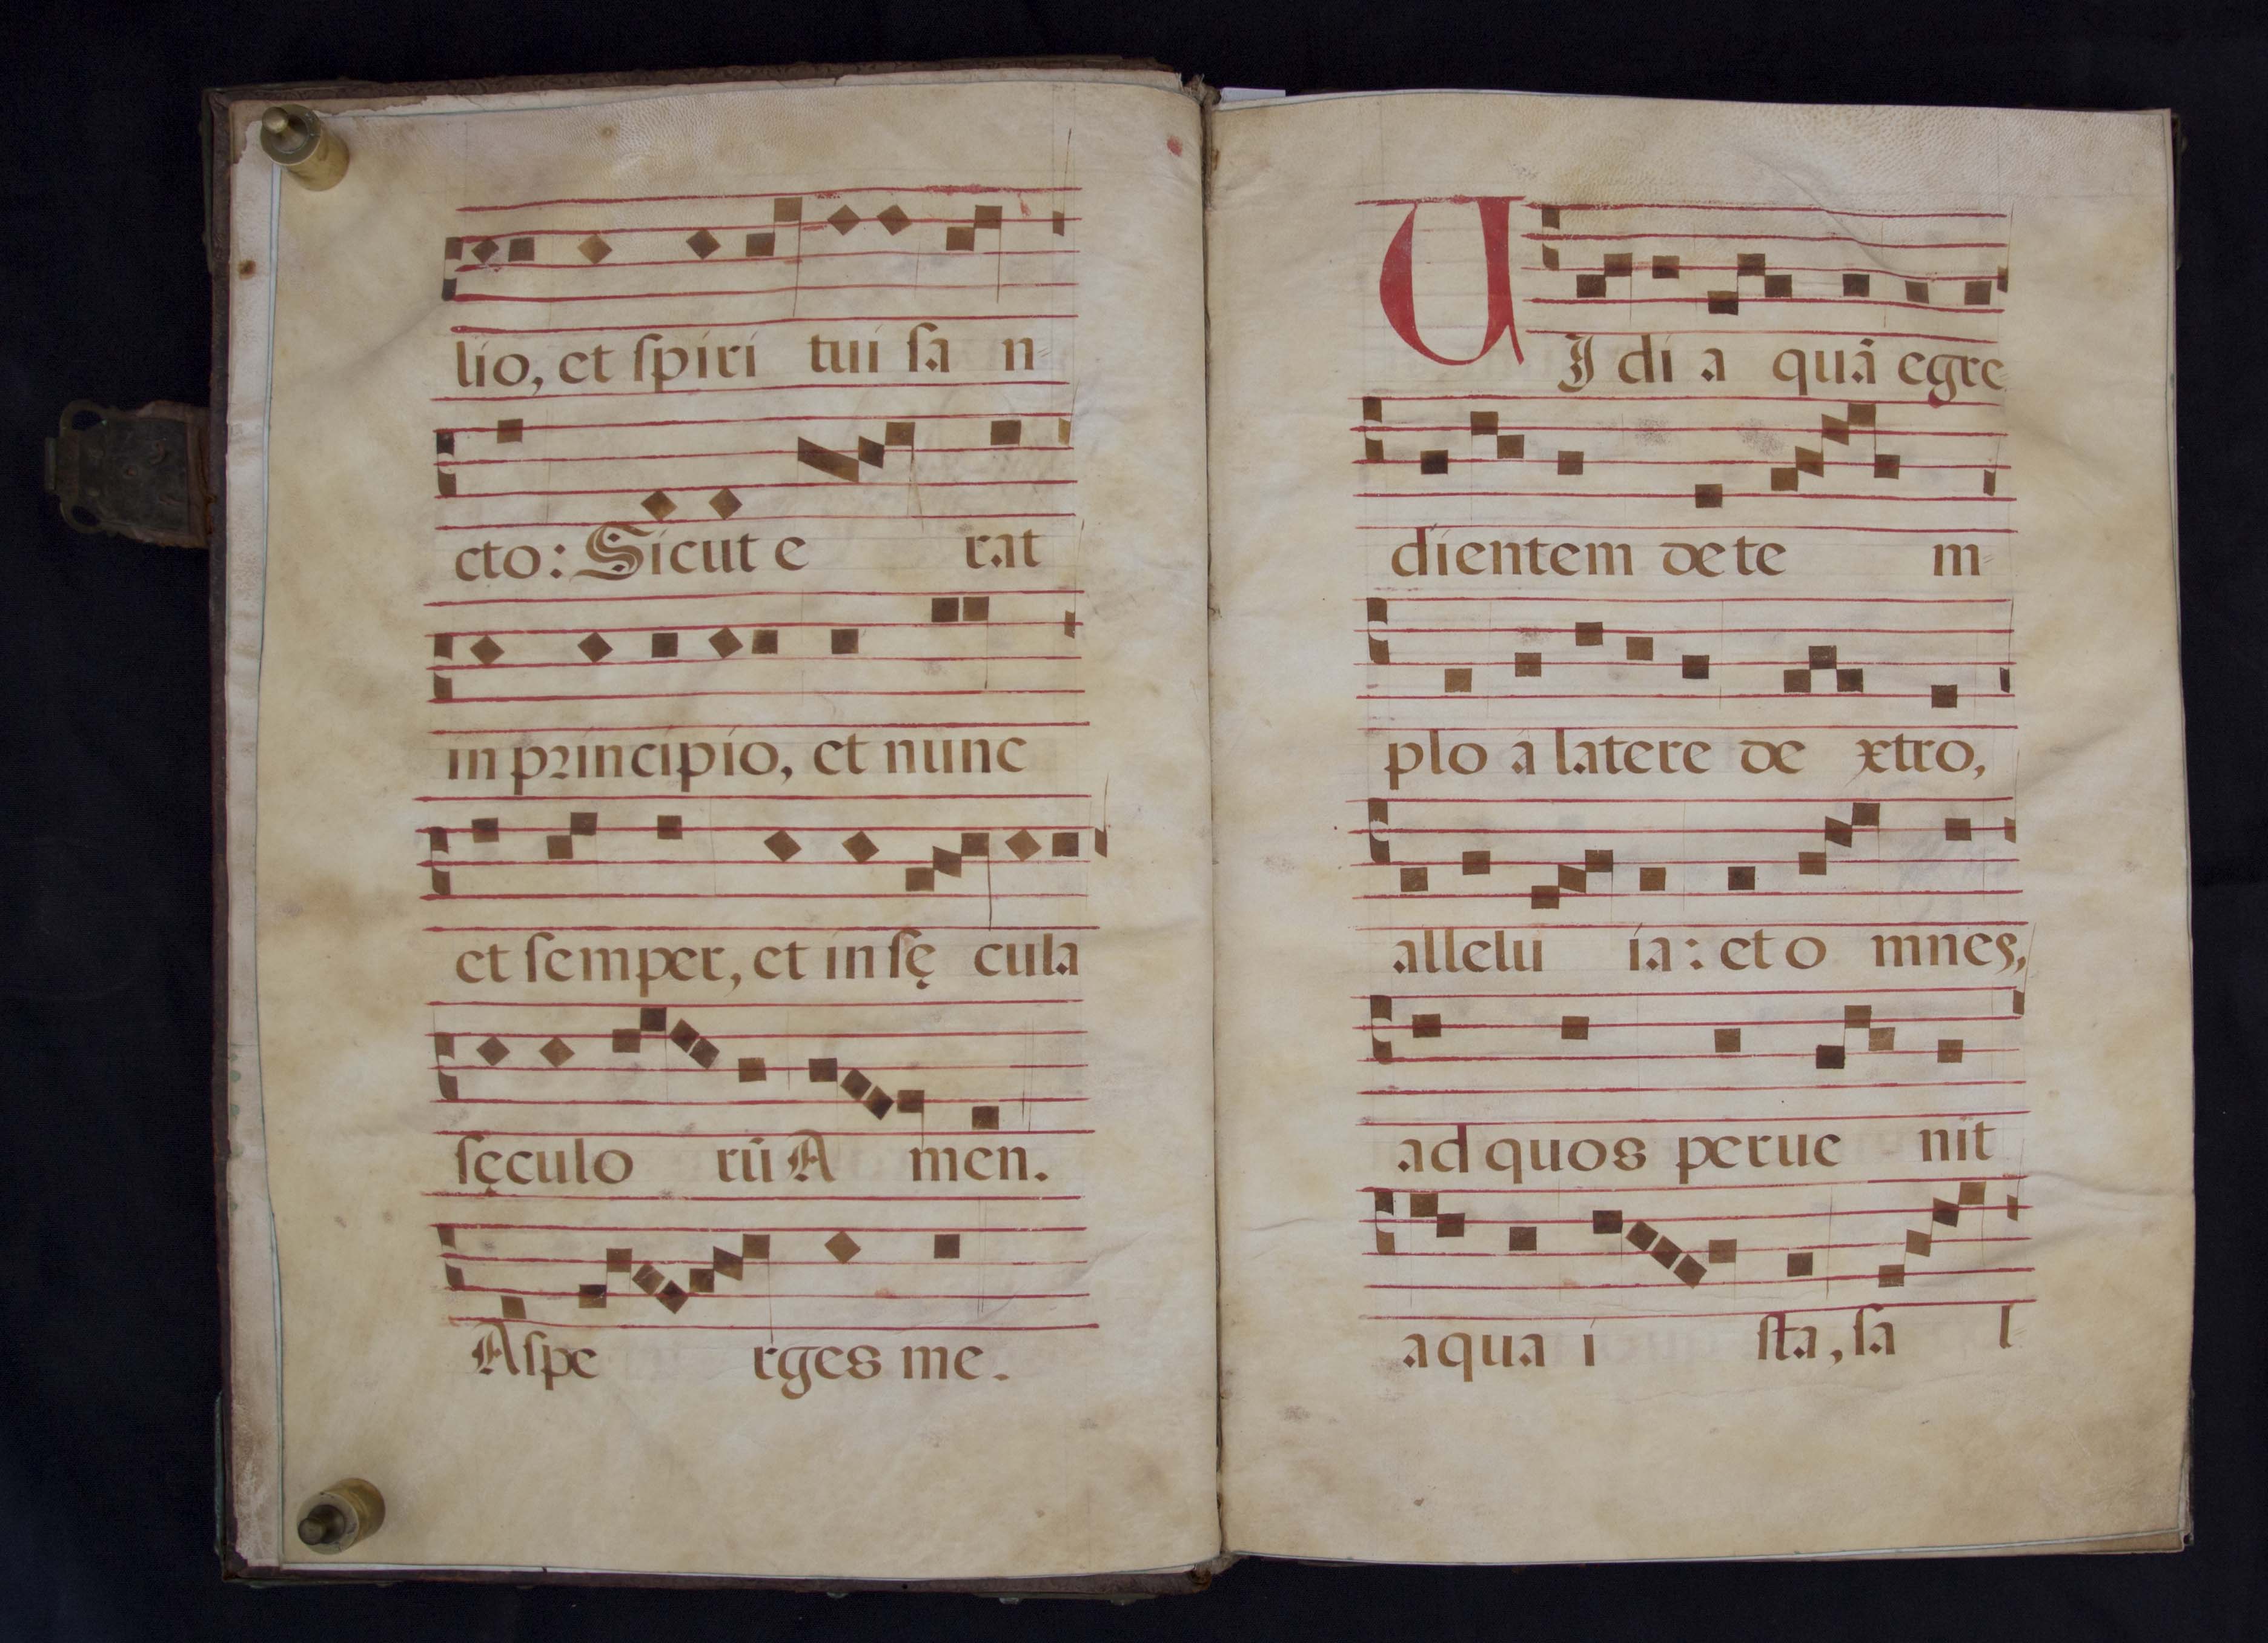 lio, et ſpiri tui ſa n
cto: Sicut e rat
in principio, et nunc
et ſemper, et in ſę cula
ſęculo rū A men.
Aſpe rges me.
UI di a quā egre
dientem de te m
plo á latere de xtro,
allelu ia: et o mnes,
ad quos perue nit
aqua i ſta, ſa l